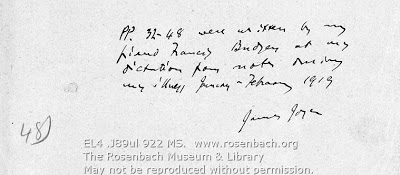 PP. 32-48 were written by my
friend Francis Budgen at my
dictation from notes during
my illness January - February 1919
James Joyce
48)
EL4 .J89ul 922 MS. www.rosenbach.org
The Rosenbach Museum & Library
May not be reproduced without permission.